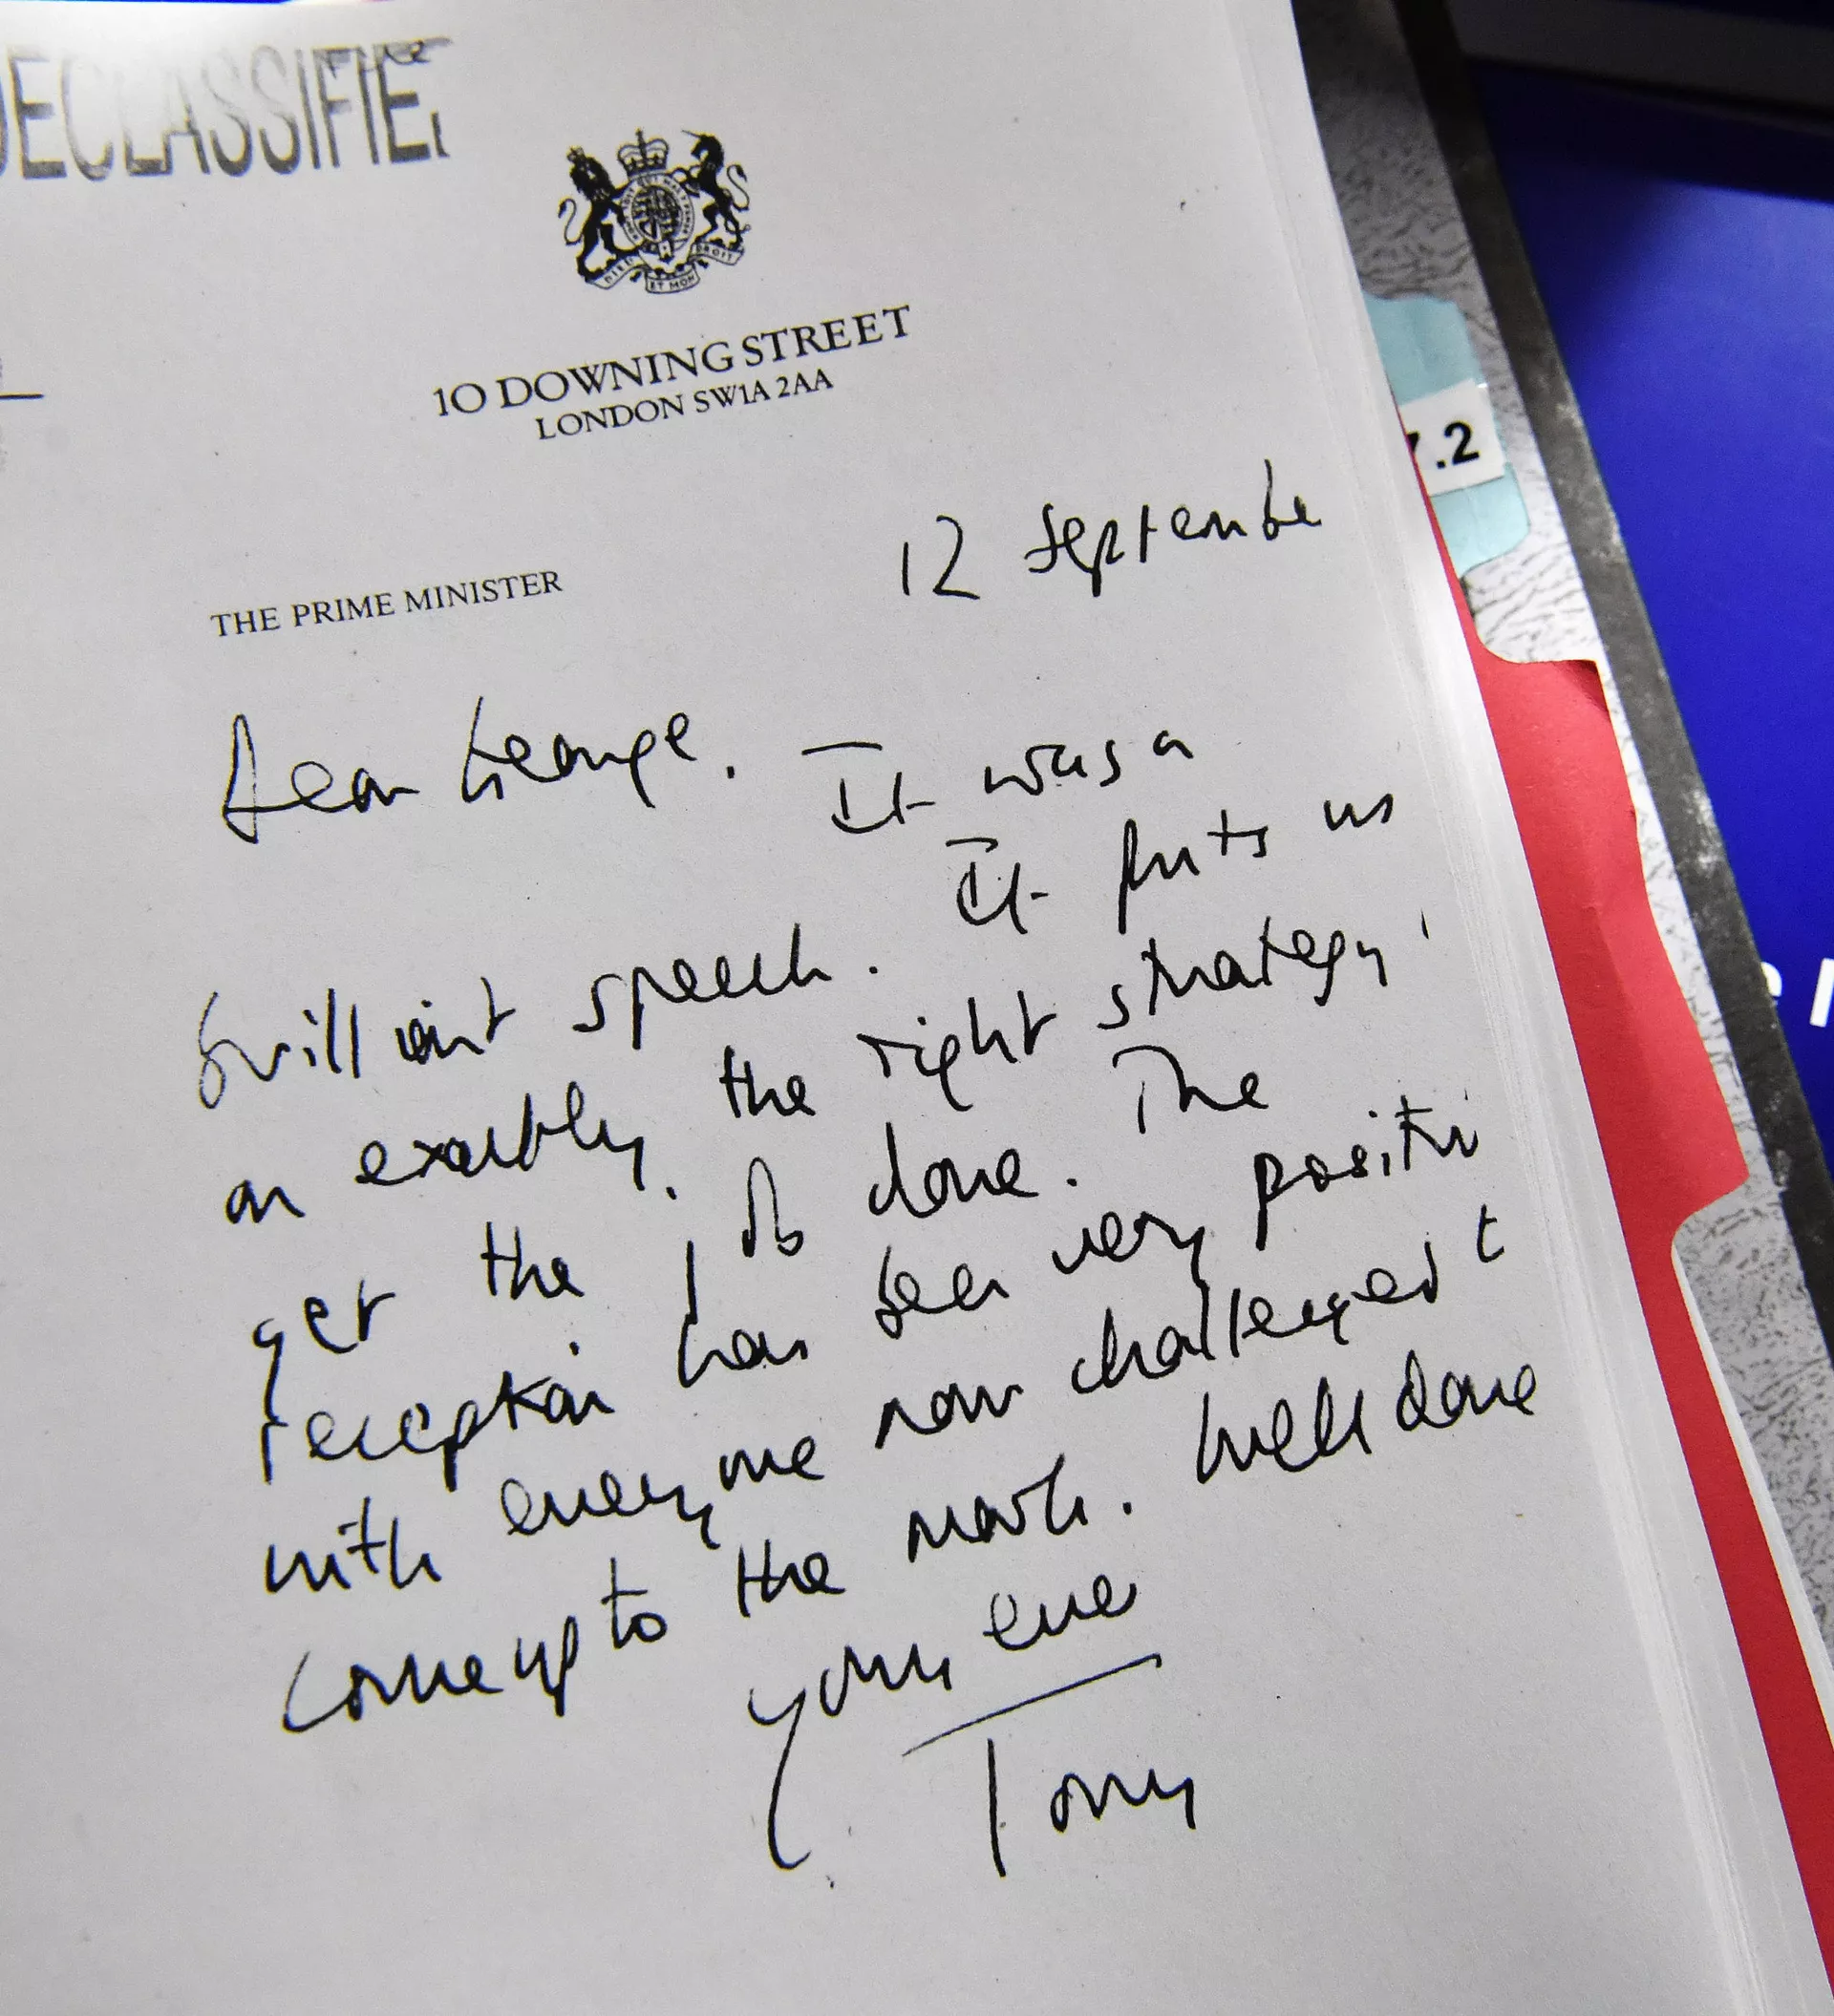 DECLASSIFIED
DIEU ET MON DROIT
10 DOWNING STREET
LONDON SW1A 2AA
7.2
12 September
THE PRIME MINISTER
Dear George. It was a
brilliant speech. It puts us
on exactly the right strategy to
get the job done. The
reception has been very positive
with everyone now challenged to
come up to the mark. Well done
Yours ever
Tony